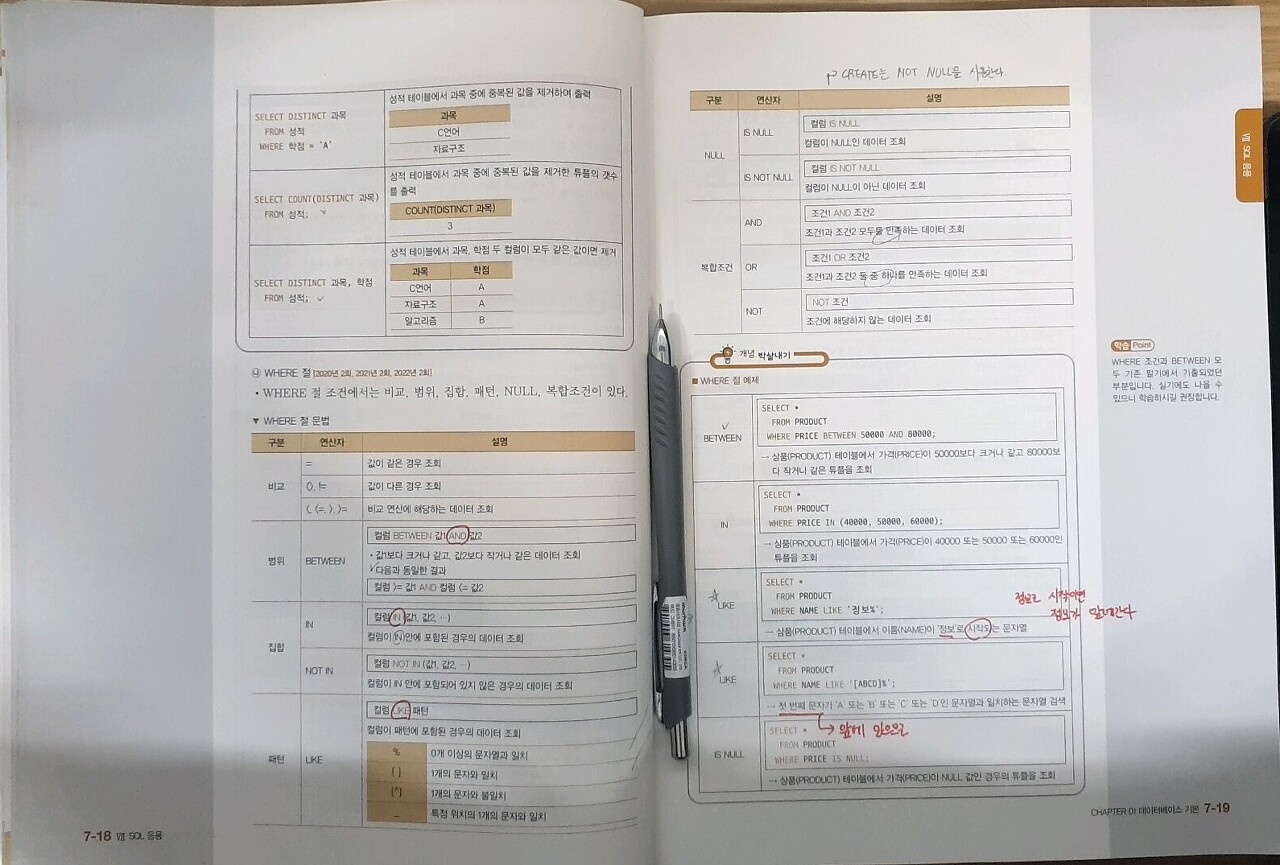 SELECT DISTINCT 과목
FROM 성적
WHERE 학점 = 'A'
성적 테이블에서 과목 중에 중복된 값을 제거하여 출력
과목
C언어
자료구조
SELECT COUNT(DISTINCT 과목)
FROM 성적;
성적 테이블에서 과목 중에 중복된 값을 제거한 튜플의 갯수
를 출력
COUNT(DISTINCT 과목)
3
SELECT DISTINCT 과목, 학점
FROM 성적;
성적 테이블에서 과목, 학점 두 컬럼이 모두 같은 값이면 제거
과목 학점
C언어 A
자료구조 A
알고리즘 B
④ WHERE 절 [2020년 2회, 2021년 2회, 2022년 2회]
• WHERE 절 조건에서는 비교, 범위, 집합, 패턴, NULL, 복합조건이 있다.
▼ WHERE 절 문법
구분 연산자 설명
비교
= 값이 같은 경우 조회
<>, != 값이 다른 경우 조회
<, <=, >, >= 비교 연산에 해당하는 데이터 조회
범위 BETWEEN
컬럼 BETWEEN 값1 AND 값2
• 값1보다 크거나 같고, 값2보다 작거나 같은 데이터 조회
다음과 동일한 결과
컬럼 >= 값1 AND 컬럼 <= 값2
집합
IN
컬럼 IN (값1, 값2, …)
컬럼이 IN 안에 포함된 경우의 데이터 조회
NOT IN
컬럼 NOT IN (값1, 값2, …)
컬럼이 IN 안에 포함되어 있지 않은 경우의 데이터 조회
패턴 LIKE
컬럼 LIKE 패턴
컬럼이 패턴에 포함된 경우의 데이터 조회
% 0개 이상의 문자열과 일치
[ ] 1개의 문자와 일치
[^] 1개의 문자와 불일치
_ 특정 위치의 1개의 문자와 일치
7-18 Ⅶ SQL 응용
CREATE는 NOT NULL을 사용한다.
구분 연산자 설명
NULL
IS NULL
컬럼 IS NULL
컬럼이 NULL인 데이터 조회
IS NOT NULL
컬럼 IS NOT NULL
컬럼이 NULL이 아닌 데이터 조회
복합조건
AND
조건1 AND 조건2
조건1과 조건2 모두를 만족하는 데이터 조회
OR
조건1 OR 조건2
조건1과 조건2 둘 중 하나를 만족하는 데이터 조회
NOT
NOT 조건
조건에 해당하지 않는 데이터 조회
개념 박살내기
■ WHERE 절 예제
BETWEEN
SELECT *
FROM PRODUCT
WHERE PRICE BETWEEN 50000 AND 80000;
→ 상품(PRODUCT) 테이블에서 가격(PRICE)이 50000보다 크거나 같고 80000보
다 작거나 같은 튜플을 조회
IN
SELECT *
FROM PRODUCT
WHERE PRICE IN (40000, 50000, 60000);
→ 상품(PRODUCT) 테이블에서 가격(PRICE)이 40000 또는 50000 또는 60000인
튜플을 조회
LIKE
SELECT *
FROM PRODUCT
WHERE NAME LIKE '정보%';
→ 상품(PRODUCT) 테이블에서 이름(NAME)이 '정보'로 시작되는 문자열
정보로 시작이면
정보가 앞에간다
LIKE
SELECT *
FROM PRODUCT
WHERE NAME LIKE '[ABCD]%';
→ 첫 번째 문자가 'A' 또는 'B' 또는 'C' 또는 'D'인 문자열과 일치하는 문자열 검색
앞에 있으므로
IS NULL
SELECT *
FROM PRODUCT
WHERE PRICE IS NULL;
→ 상품(PRODUCT) 테이블에서 가격(PRICE)이 NULL 값인 경우의 튜플을 조회
Ⅶ SQL 응용
학습 Point
WHERE 조건과 BETWEEN 모
두 기존 필기에서 기출되었던
부분입니다. 실기에도 나올 수
있으니 학습하시길 권장합니다.
CHAPTER 01 데이터베이스 기본 7-19